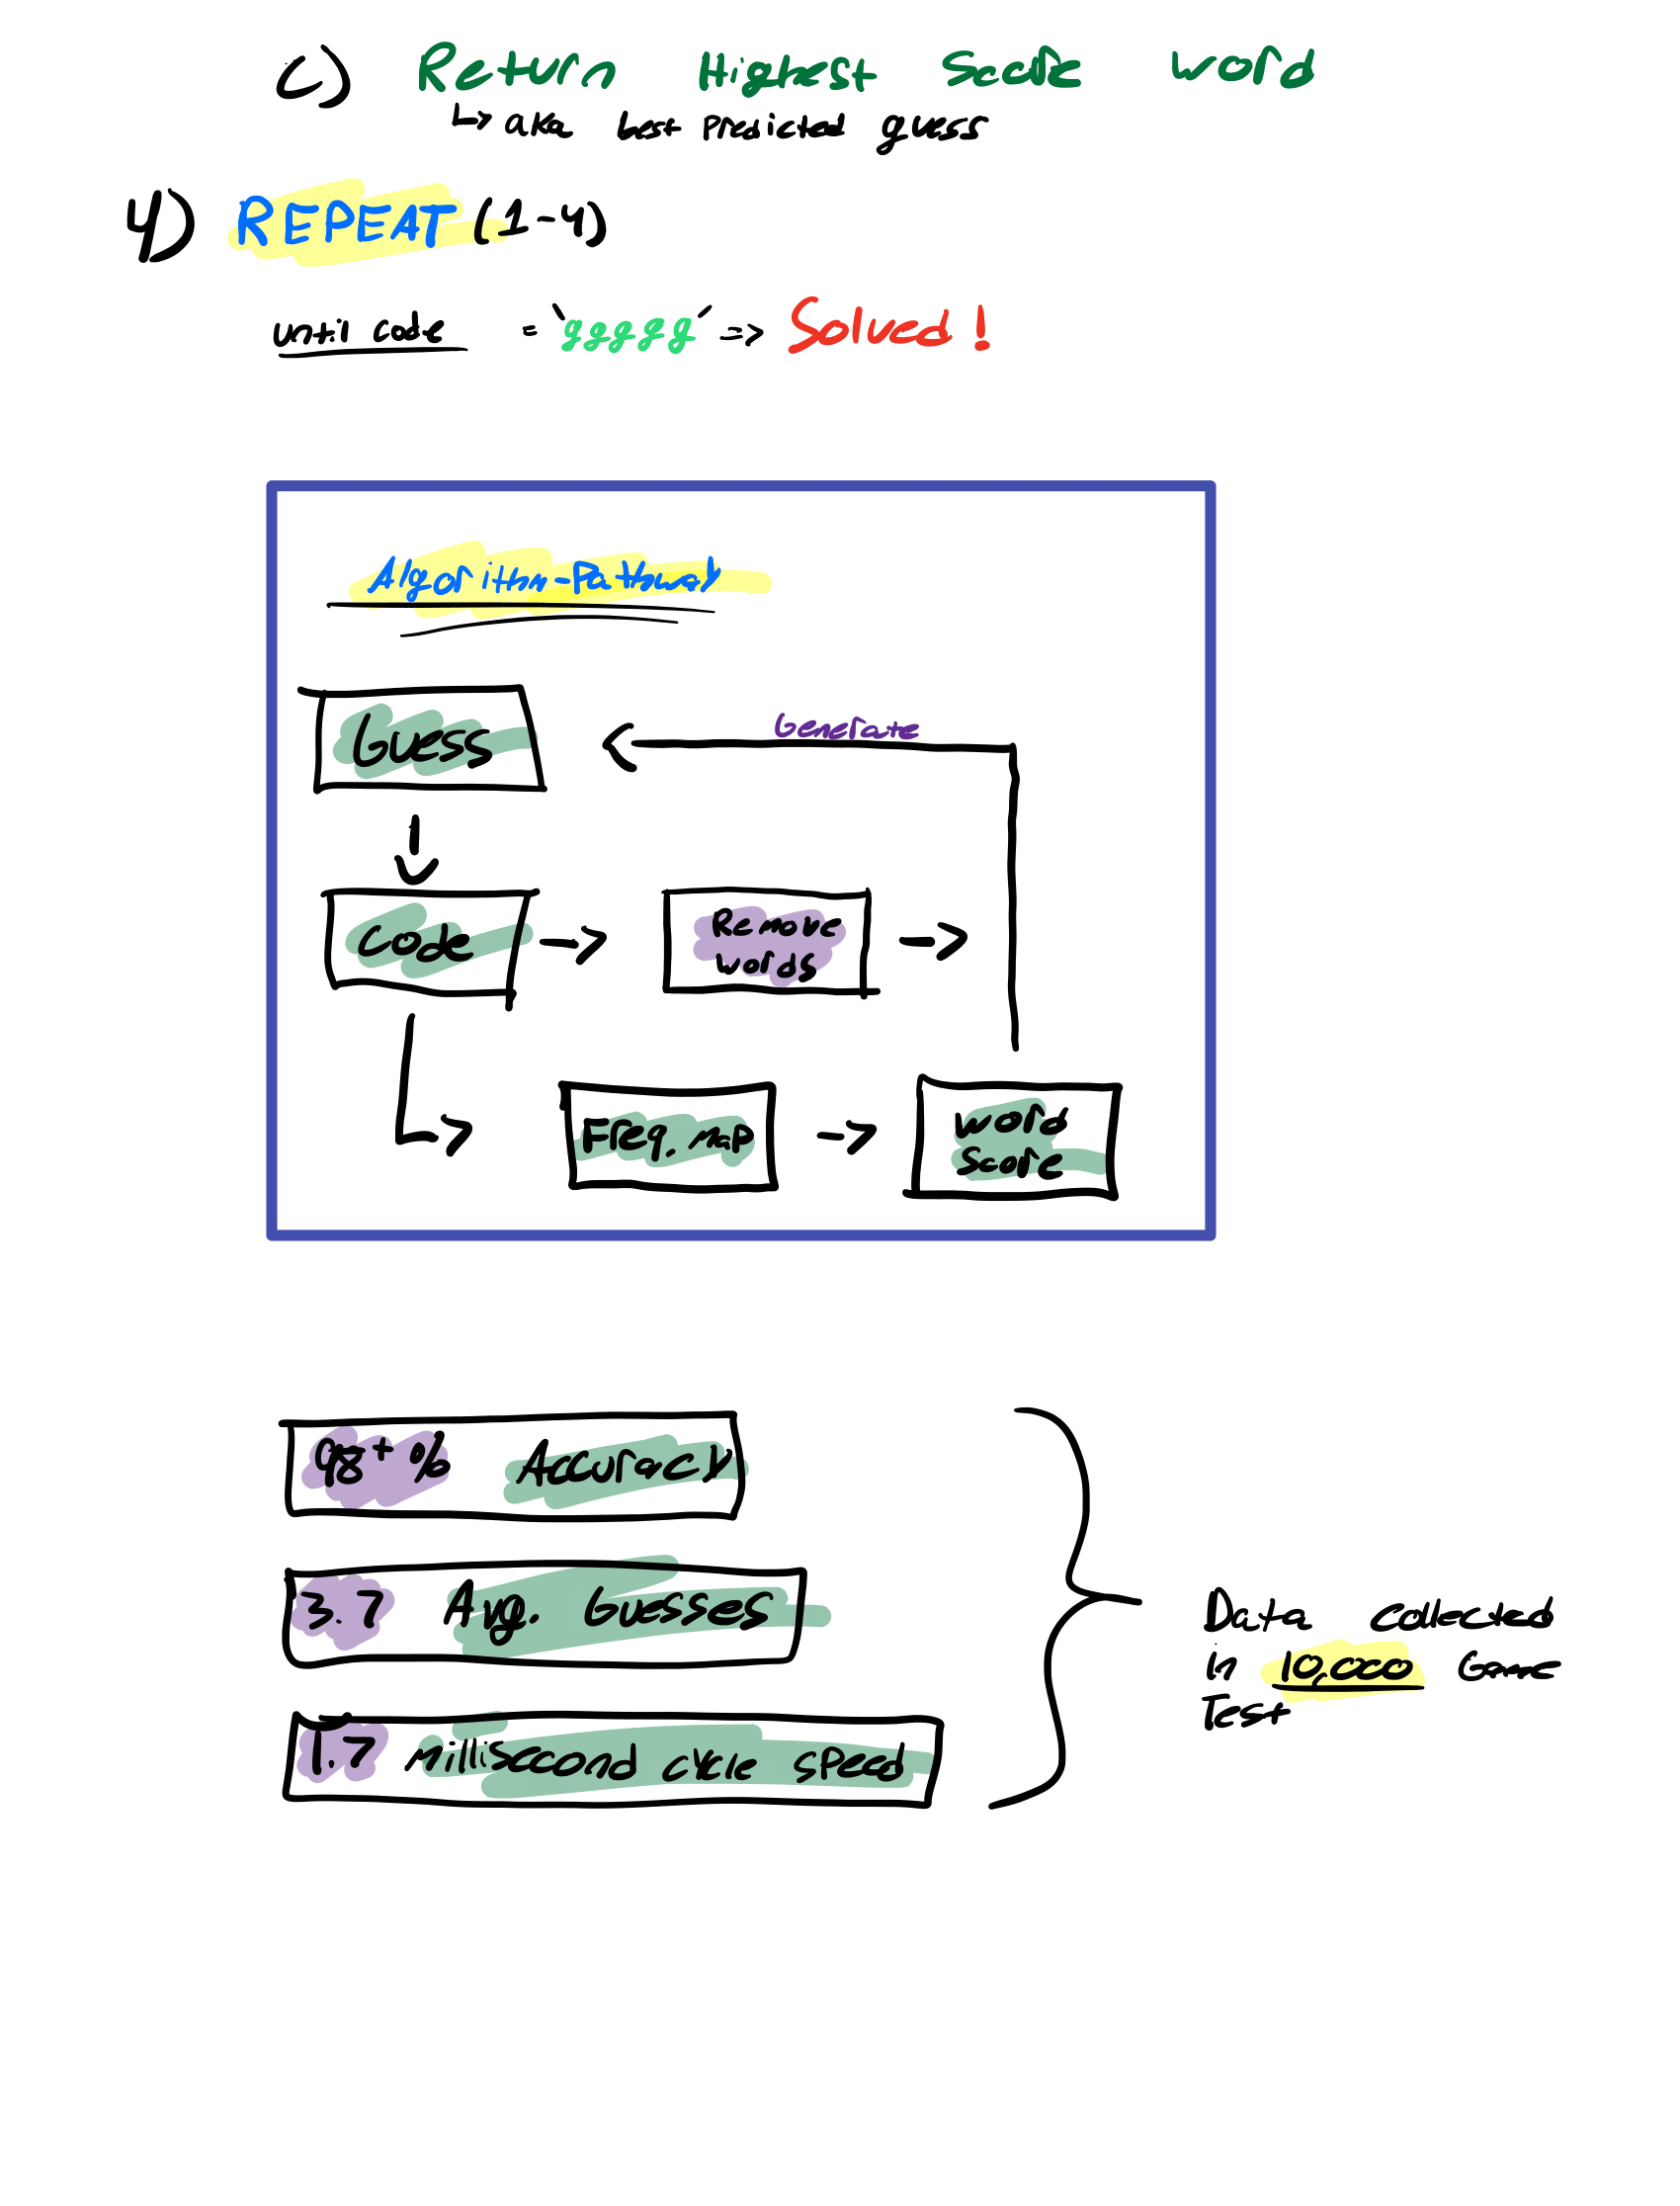 c) Return Highest Score word
↳ aka best predicted guess
4) REPEAT (1-4)
until code = 'ggggg' => Solved!
Algorithm-Pathway
Guess
Generate
Code → Remove
words →
Freq. Map → word
Score
98+% Accuracy
3.7 Avg. Guesses
1.7 millisecond cycle speed
Data collected
in 10,000 Game
Test